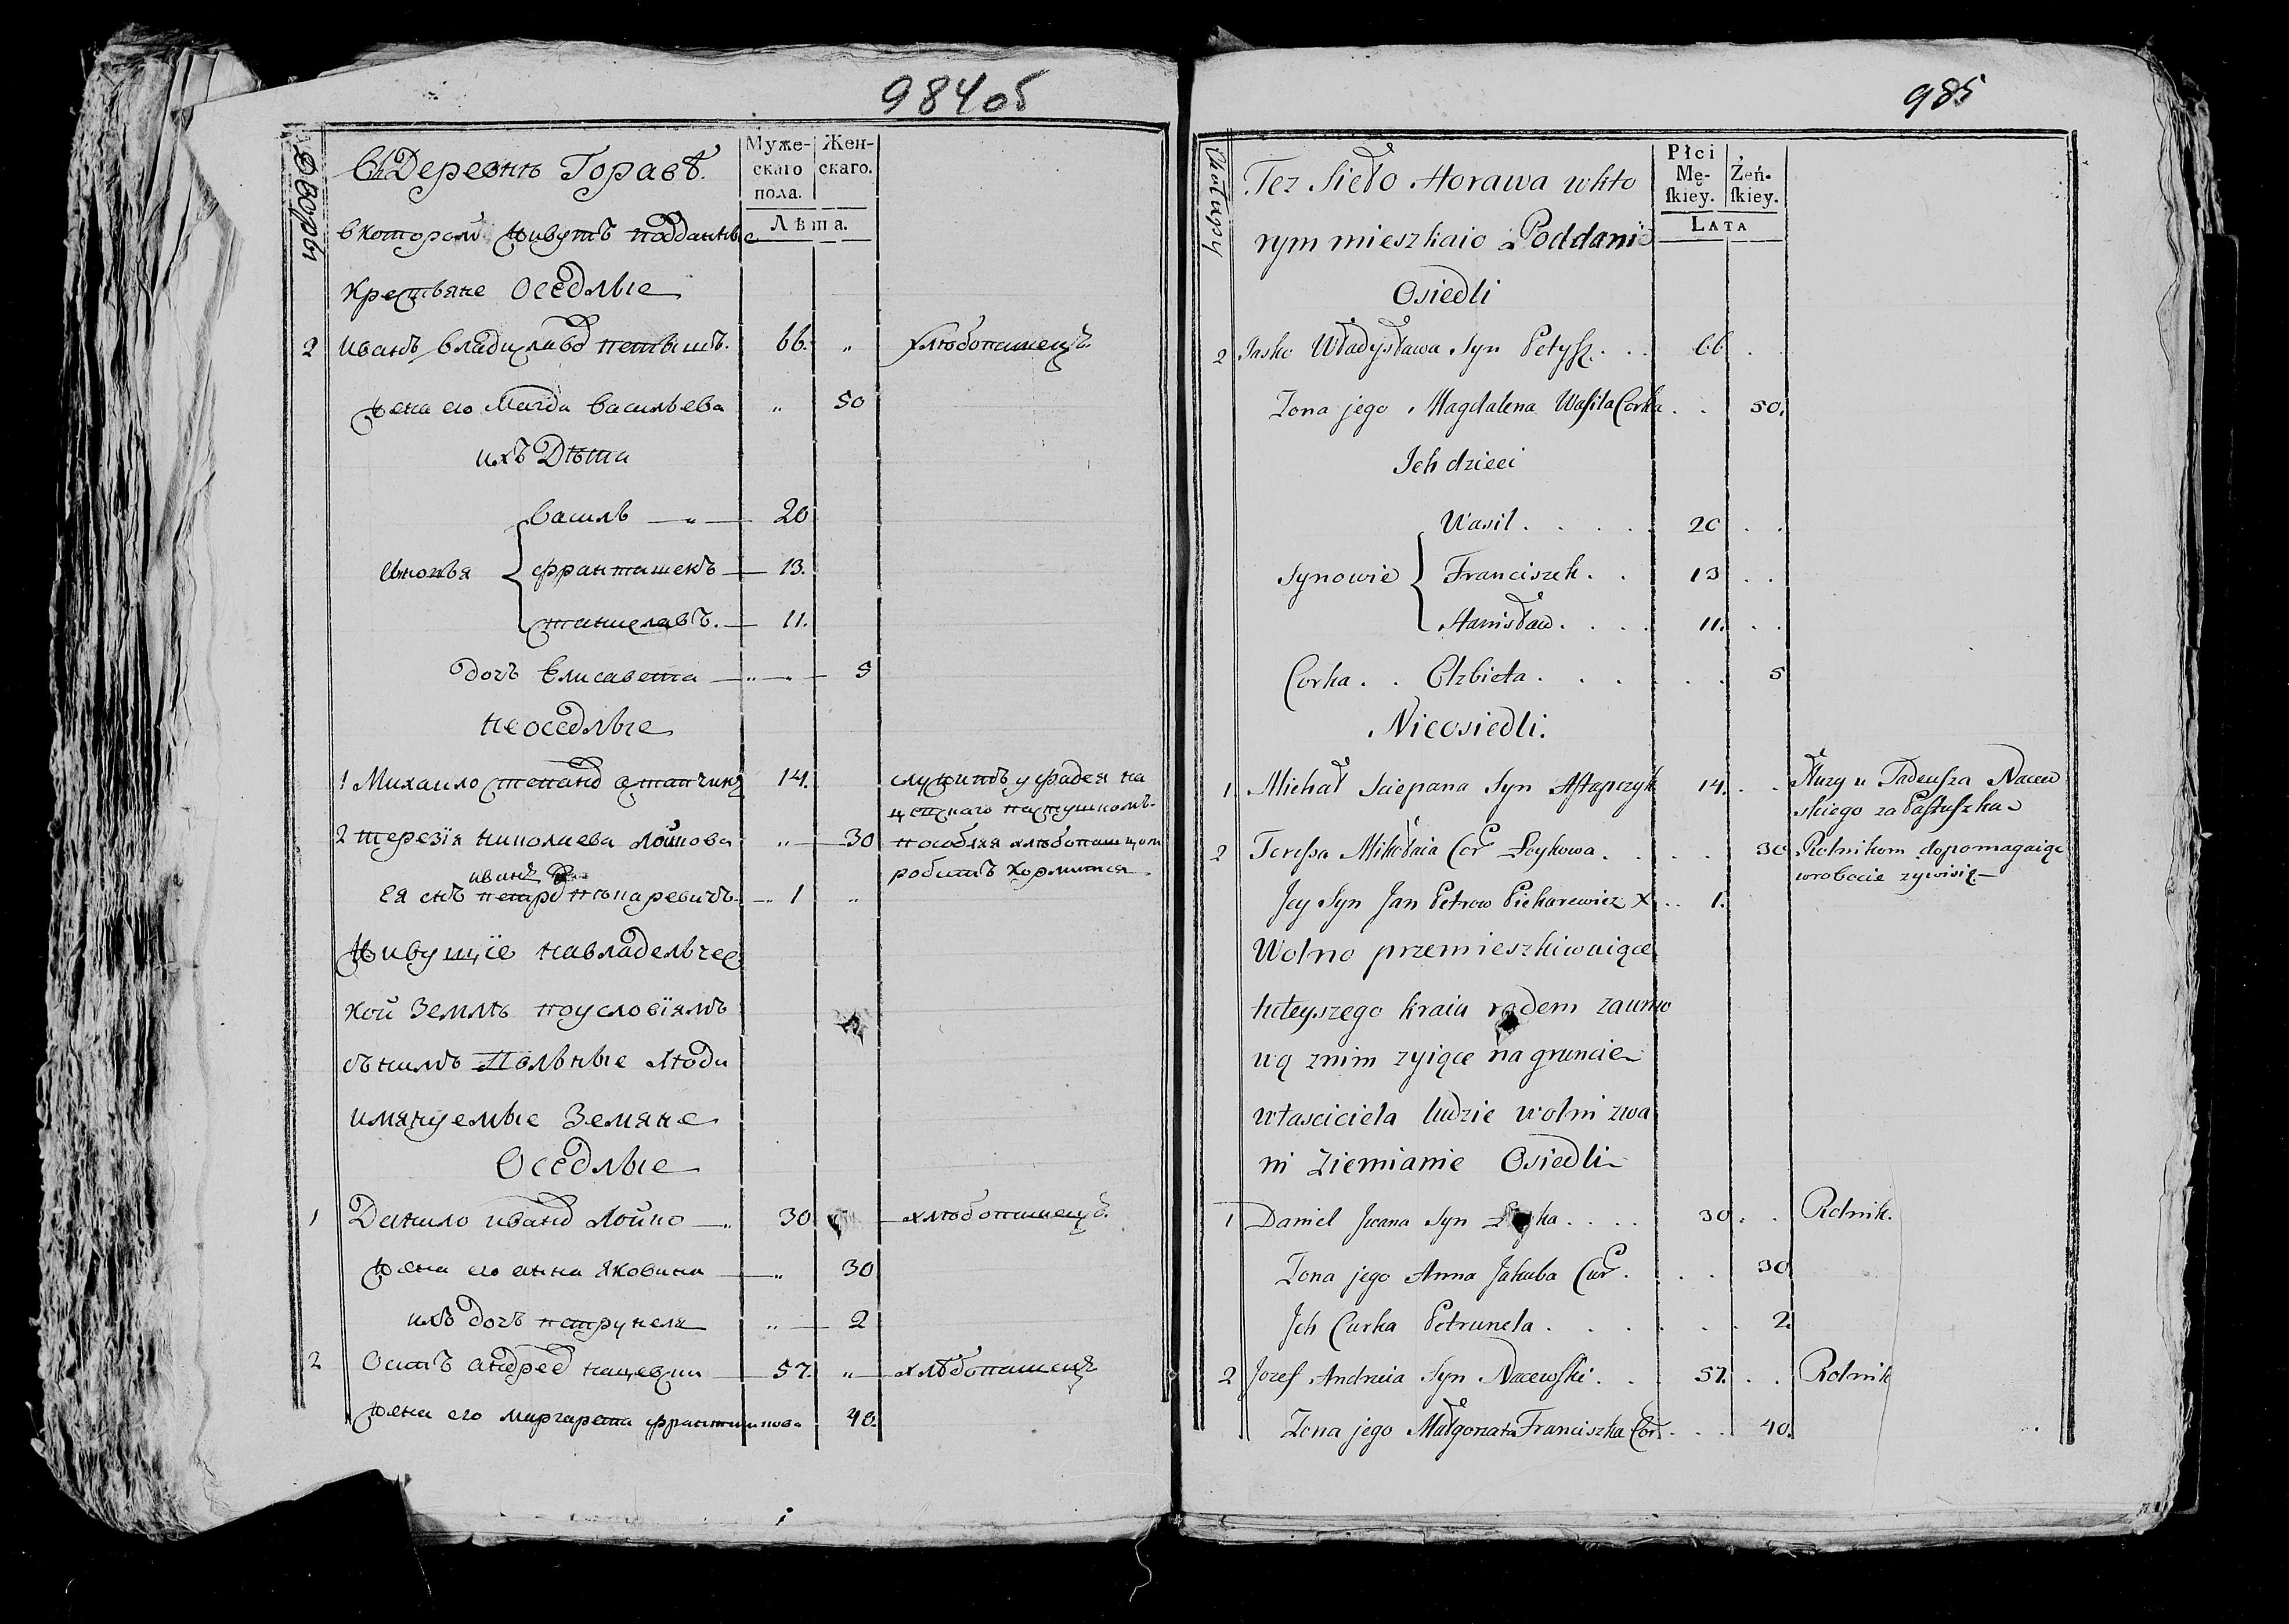 984об
Дворы
Въ Деревнѣ Горавѣ.
Муже-
скаго
пола.
Жен-
скаго.
Лѣта.
в которой живутъ подданные
крестьяне Оседлые
2 иванъ владиславов петышъ. 66. „ хлѣбопашецъ
жена его Магда васильева „ 50
ихъ Дѣти
Сыновья
василь — „ — 20
францишекъ — 13.
станиславъ. — 11.
дочь Елисавета — „ — „ — 5
неоседлые
1 Михаило степанов астапчикъ 14. служитъ у фадея на
цевскаго пастушкомъ.
2 терезія николаева Лойкова „ — 30 пособляя хлѣбопашцом
роботъ кормится
иванъ
Ея сынъ петров пекаревичъ — „ 1 „
Живущіе на владельчес
кой Землѣ по условіямъ
съ нимъ вольные люди
имянуемые Земяне
Оседлые
1 Данило иванов Лойко — „ 30 — хлѣбопашецъ.
жена его анна Яковина — „ 30
ихъ дочь петрунеля „ — 2
2 Осипъ андреев нацевски — 57. „ — хлѣбопашецъ
жена его маргарета францишкова 40.
985
Chałupy
Tez Sieło Horawa w kto
Płci
Mę-
ſkiey.
Żeń-
ſkiey.
LATA
rym mieszkaio Poddani
Osiedli
2 Jasko Władysława Syn Petyſz . . . 66 . .
Zona jego Magdalena Waſila Corka . . 50.
Ich dzieci
Synowie
Wasil . . . . . 20 . .
Franciszek . . 13 . .
Stanisław . . . . 11. . .
Corka . . Elzbieta . . . . . . 5
Nieosiedli.
1 Michał Sciepana Syn Astapczyk 14. . . Służy u Tadeuſza Nacew
skiego za Paſtuſzka
2 Tereſsa Mikołaia Cor Łoykowa . . . . 30 Rolnikom dopomagaiąc
w robocie zywi się
Jey Syn Jan Petrow Piekarewicz X . . 1.
Wolno przemieszkiwaiące
tuteyszego kraiu rodem za umo
wą z nim zyiące na gruncie
własciciela ludzie wolni zwa
ni Ziemianie Osiedli
1 Daniel Jwana Syn Łoyka . . . . 30. . . Rolnik.
Zona jego Anna Jakuba Cur . . . . 30
Jch Curka Petrunela . . . . . . 2.
2 Jozef Andreia Syn Nacewſki . . . 57. . . Rolnik
Zona jego Małgorzata Franciszka Cor . . . 40.